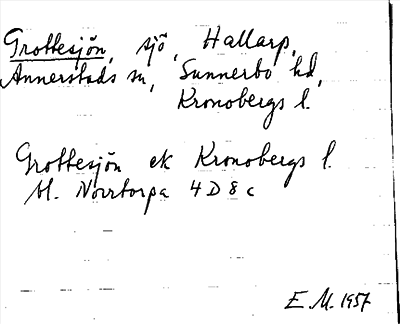 Grottesjön, sjö, Hallarp,
Annerstads sn, Sunnerbo hd,
Kronobergs l.
Grottesjön ek Kronobergs l.
bl. Norrtorpa 4 D 8 c
E.M. 1957